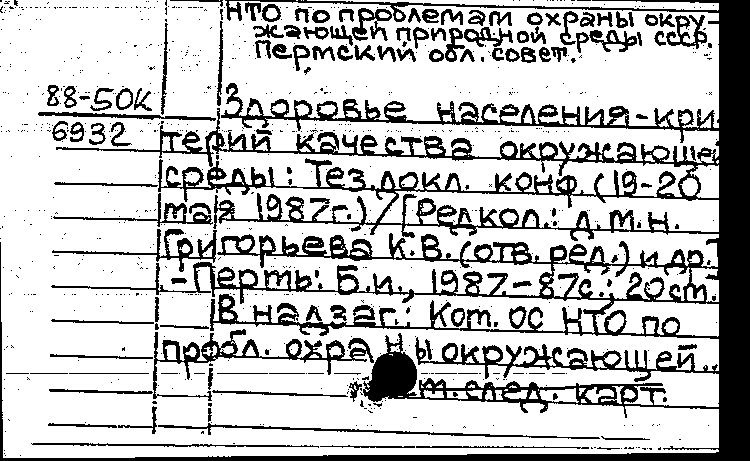 НТО по проблемам охраны окру-
жающей природной среды СССР.
Пермский обл. совет.
88-50К
Здоровье населения-кри-
6932
терий качества окружающей
среды: Тез. докл. конф. (19-20
мая 1987г.)/[Редкол.: д.м.н.
Григорьева К.В. (отв. ред.) и др.]
-Пермь: Б.и., 1987-87с.; 20см.
В надзаг.: Ком. ОС НТО по
пробл. охраны окружающей..
след. карт.